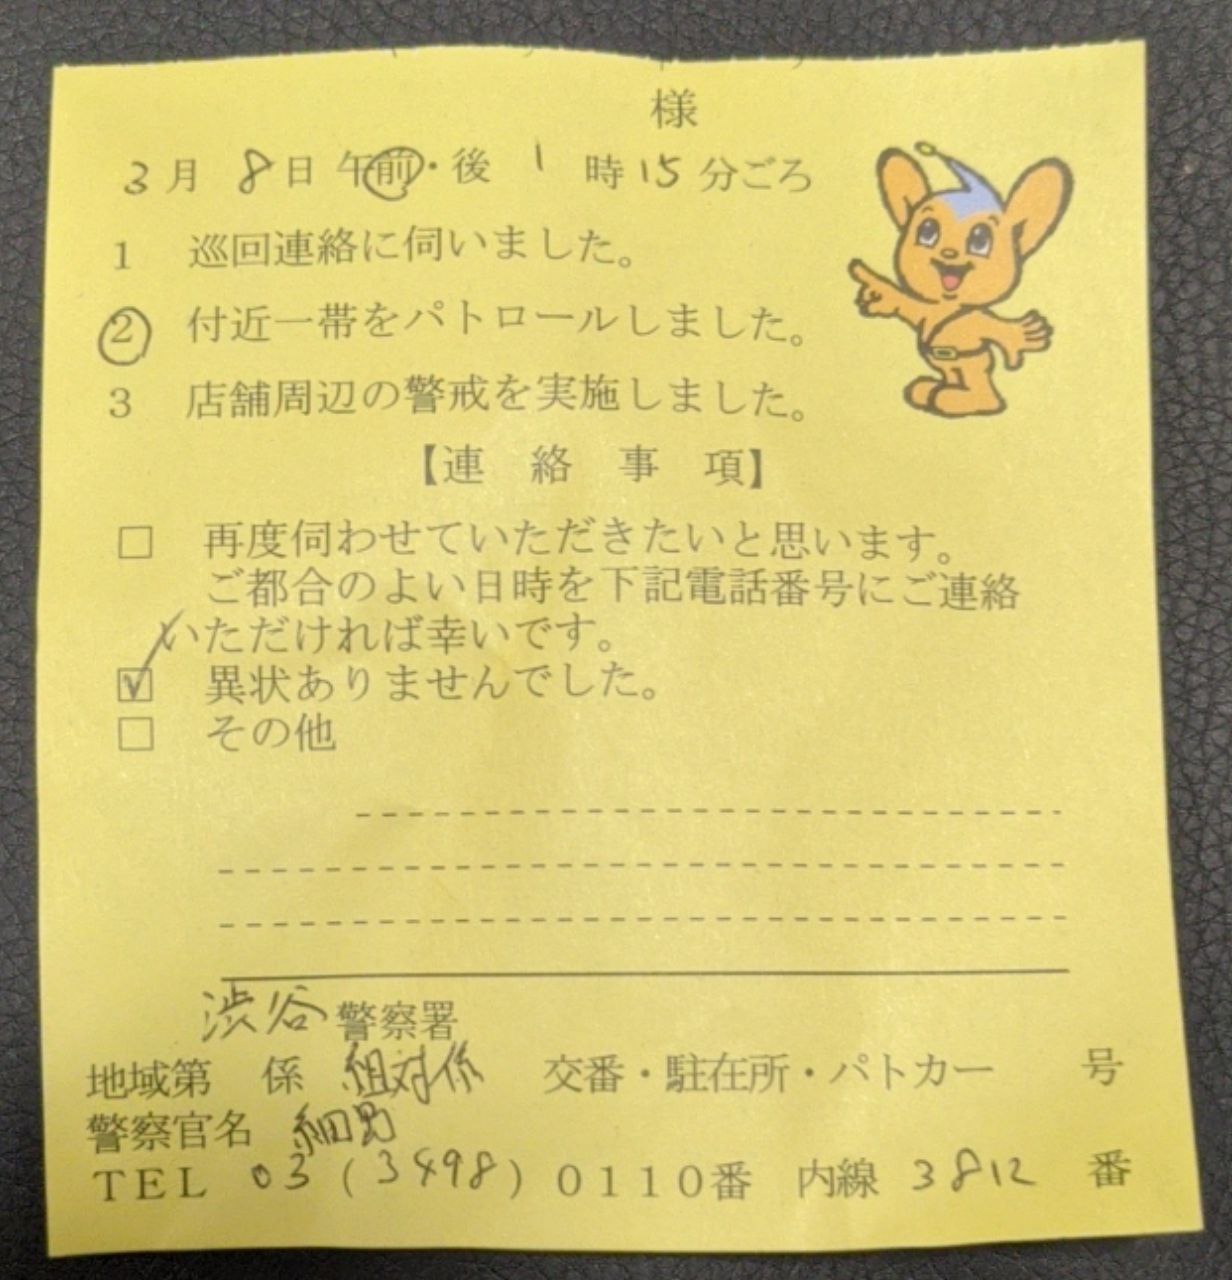 様
3月8日 午前・後 1時15分ごろ
1 巡回連絡に伺いました。
2 付近一帯をパトロールしました。
3 店舗周辺の警戒を実施しました。
【連 絡 事 項】
□ 再度伺わせていただきたいと思います。
ご都合のよい日時を下記電話番号にご連絡
いただければ幸いです。
☑ 異状ありませんでした。
□ その他
渋谷警察署
地域第 係 組対係 交番・駐在所・パトカー 号
警察官名
TEL 03(3498)0110番 内線 3812 番